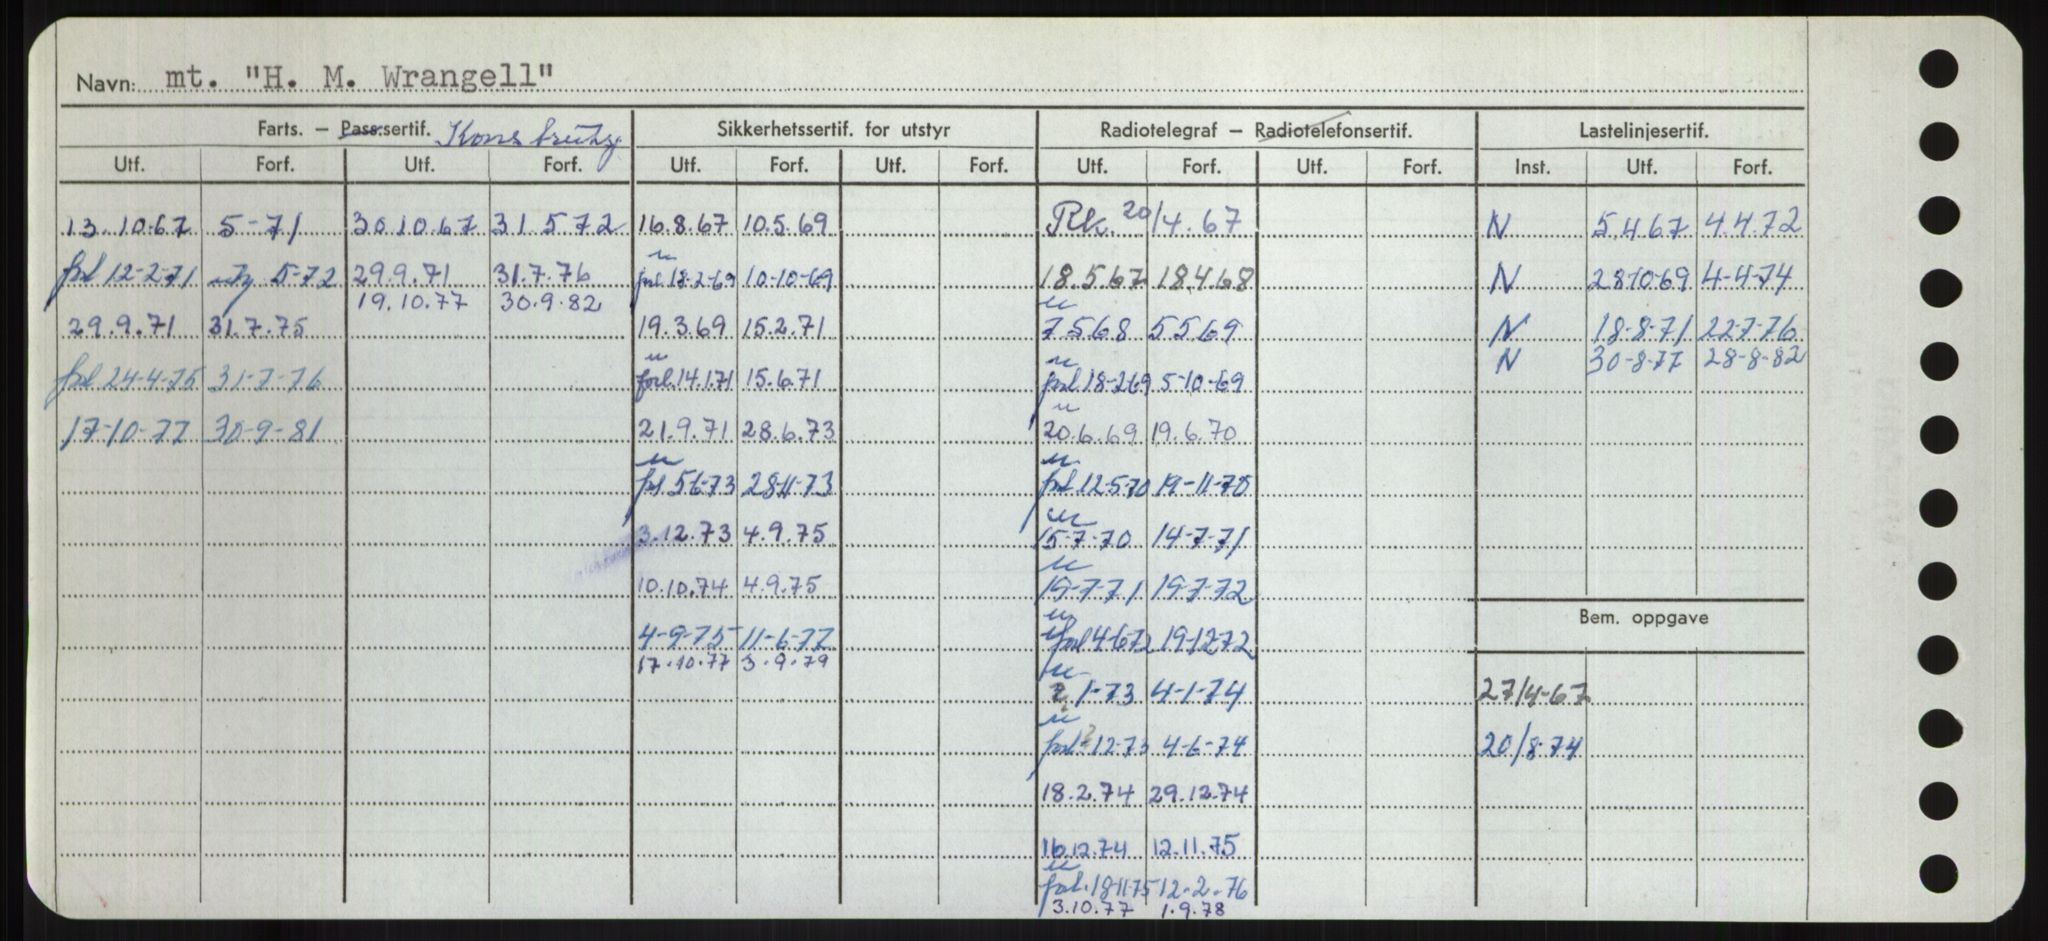 Navn: mt. "H. M. Wrangell"
Farts. – Pass.sertif. Sikkerhetssertif. for utstyr Radiotelegraf – Radiotelefonsertif. Lastelinjesertif.
Utf. Forf. Utf. Forf. Utf. Forf. Utf. Forf. Utf. Forf. Utf. Forf. Inst. Utf. Forf.
13.10.67 5-71 30.10.67 31.5.72 16.8.67 10.5.69 Rk. 20/4.67 N 5.4.67 4.4.72
forl 12-2-71 5-72 29.9.71 31.7.76 forl 18-2-69 10-10-69 18.5.67 18.4.68 N 28-10-69 4-4-74
19.10.77 30.9.82
29.9.71 31.7.75 19.3.69 15.2.71 7.5.68 5.5.69 N 18-8-71 22-7-76
N 30-8-77 28-8-82
forl 24-4-75 31-7-76 forl.14.1.71 15.6.71 forl 18-2-69 5-10-69
17-10-77 30-9-81 21.9.71 28.6.73 20.6.69 19.6.70
forl 5-6-73 28-11-73 forl 12-5-70 19-11-70
3.12.73 4.9.75 15-7-70 14-7-71
10.10.74 4.9.75 19-7-71 19-7-72
Bem. oppgave
4-9-75 11-6-77 forl 4-6-72 19-12-72
17.10.77 3.9.79
1-73 4-1-74 27/4-67
forl 12-73 4-6-74 20/8-74
18.2.74 29.12.74
16.12.74 12.11.75
forl. 18-11-75 12-2-76
3.10.77 1.9.78